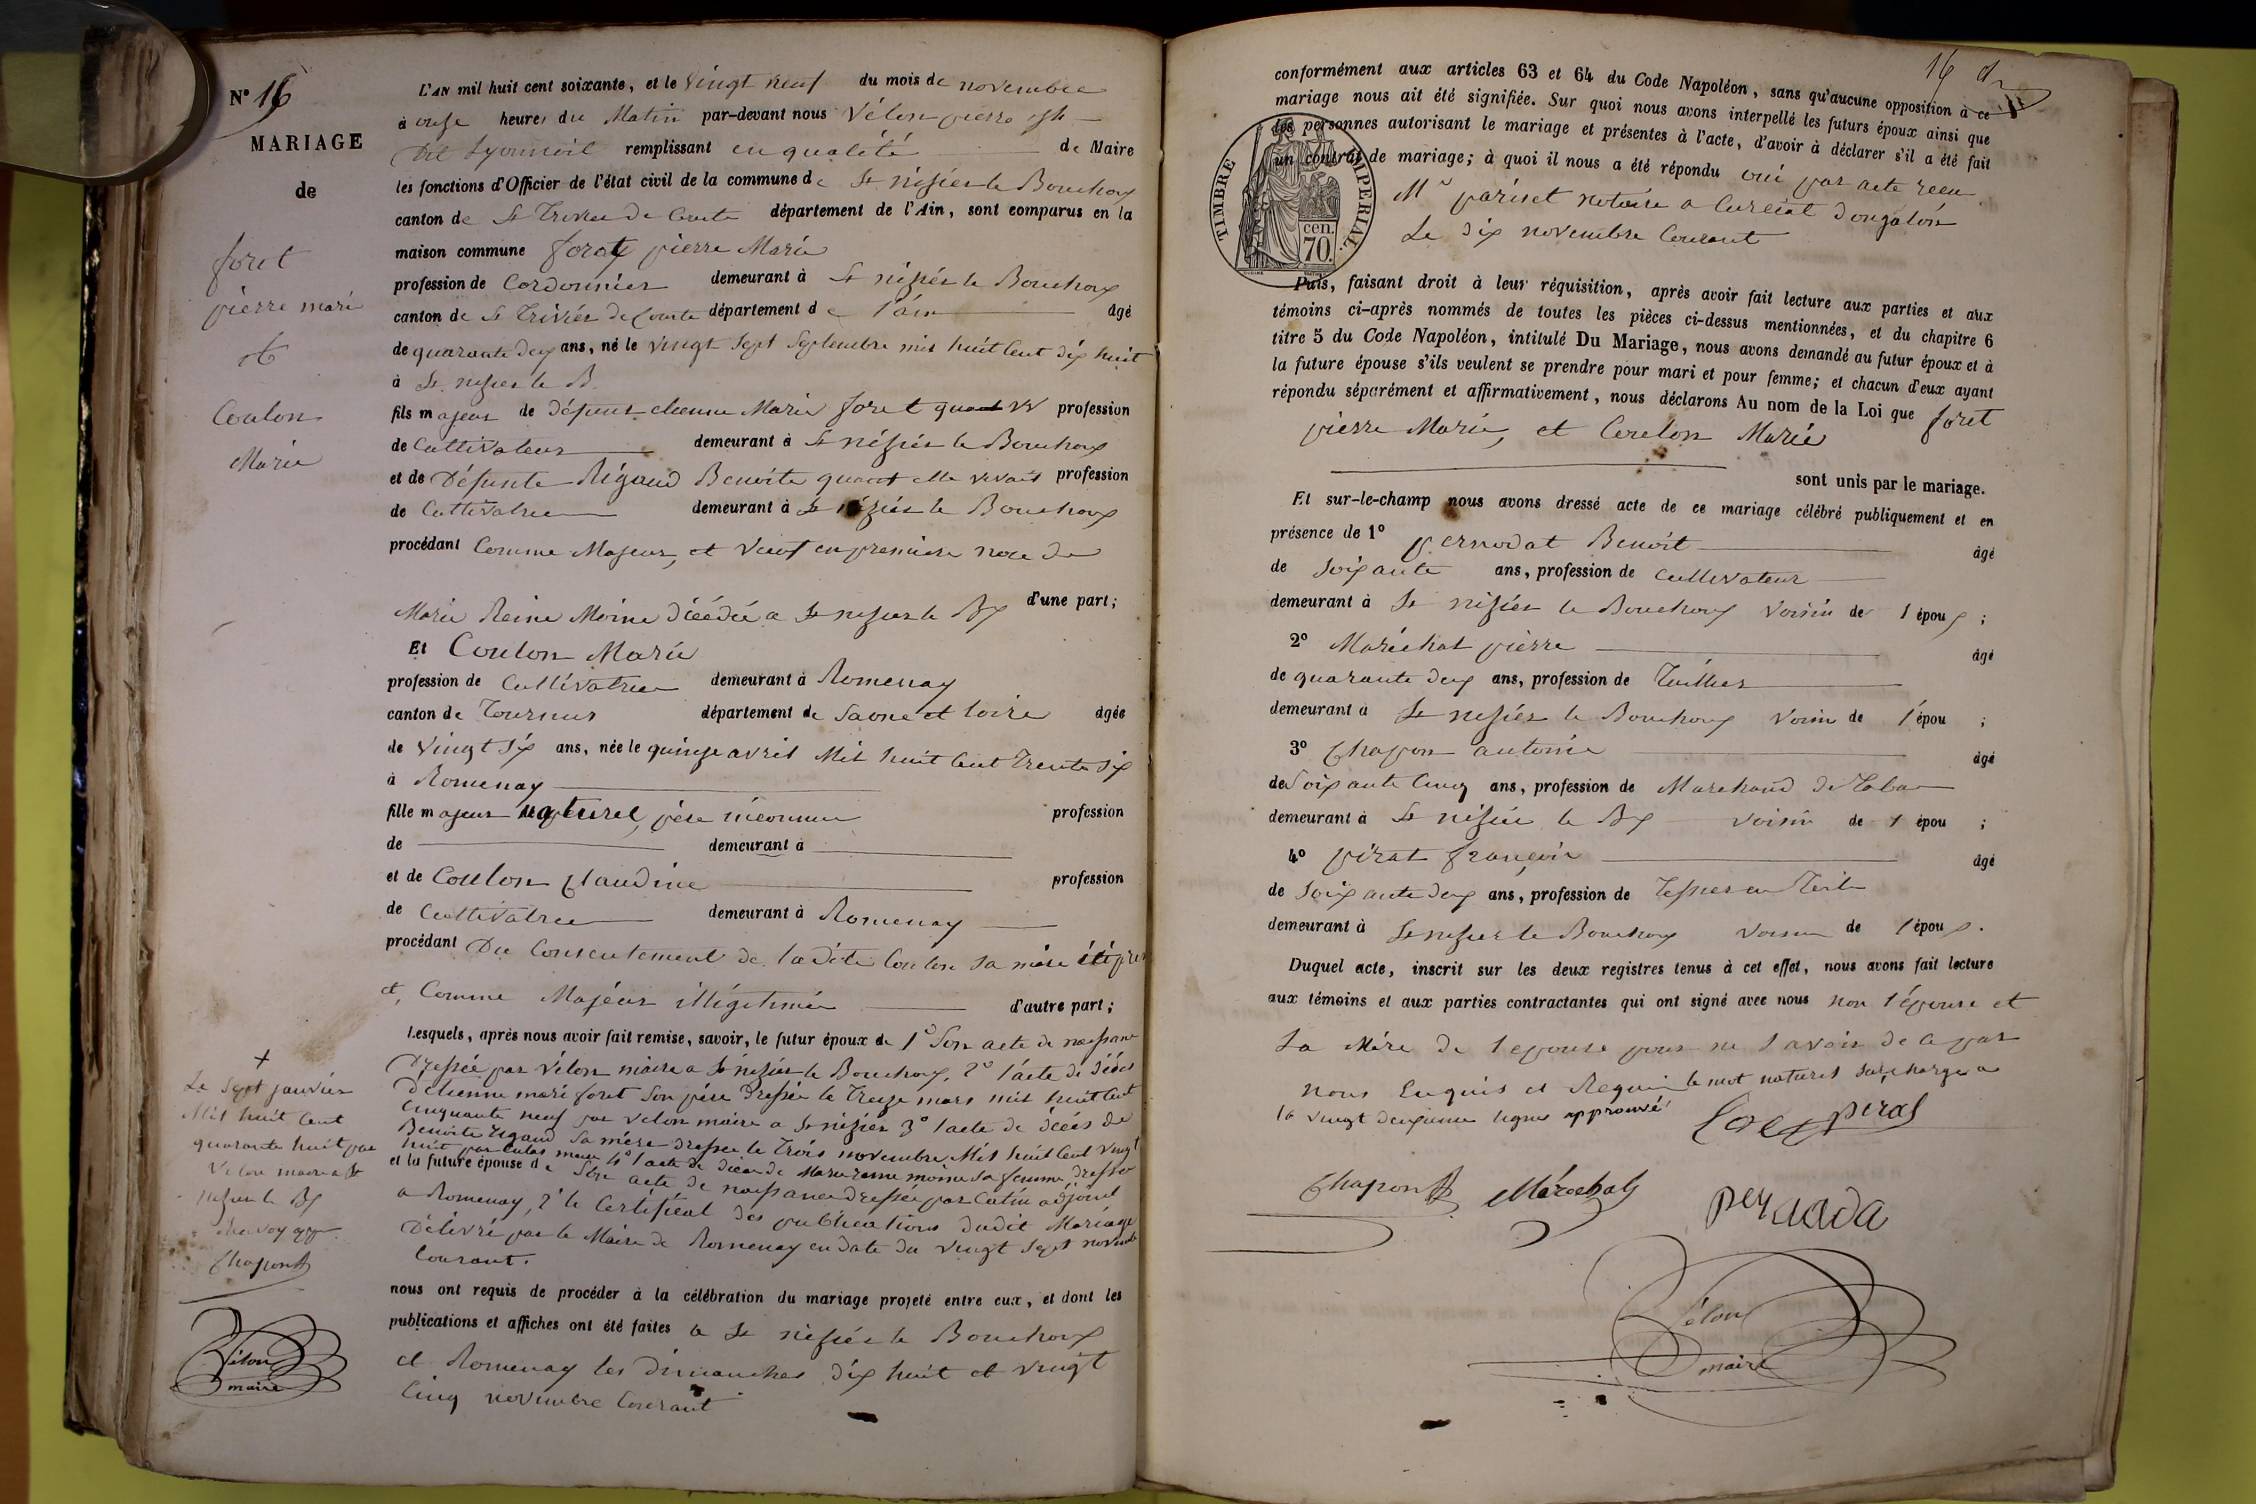 N° 16
MARIAGE
de
foret
pierre marie
et
Coulon
Marie
L'AN mil huit cent soixante, et le vingt neuf du mois de novembre
à onze heures du Matin par-devant nous Vélon pierre
Dit Lyonnois remplissant en qualité de Maire
les fonctions d'Officier de l'état civil de la commune de St nizier le Bouchoux
canton de St Trivier de Courte département de l'Ain, sont comparus en la
maison commune foret pierre Marie
profession de Cordonnier demeurant à St nizier le Bouchoux
canton de St Trivier de Courte département de l'ain âgé
de quarante deux ans, né le vingt Sept Septembre mil huit Cent dix huit
à St nizier le B.
fils majeur de défunt etienne Marie foret quand vv profession
de Cultivateur demeurant à St nizier le Bouchoux
et de Défunte Rigaud Benoite quand elle vivait profession
de Cultivatrice demeurant à St nizier le Bouchoux
procédant Comme Majeur, et veuf en premiere noce de
Marie Reine Moine décédée a St nizier le Bx d'une part;
Et Coulon Marie
profession de Cultivatrice demeurant à Romenay
canton de Tournus département de Saone et loire âgée
de vingt Six ans, née le quinze avril Mil huit Cent Trente Six
à Romenay
fille majeur naturel, père inconnu profession
de demeurant à
et de Coulon Claudine profession
de Cultivatrice demeurant à Romenay
procédant Du Consentement de ladite Coulon sa mère ici
et, Comme Majeur illégitimée d'autre part;
Lesquels, après nous avoir fait remise, savoir, le futur époux de 1° Son acte de naissance
Dressée par Vélon maire a St nizier le Bouchoux, 2° l'acte de décés
D'etienne marie foret Son père Dressée le Treize mars mil huit Cent
Cinquante neuf par velon maire a St nizier 3° l'acte de décés de
Benoite Rigaud Sa mère dressée le Trois novembre Mil huit Cent vingt
huit par maire 4° l'acte de décés de Marie reine moine sa femme dressée
et la future épouse de Son acte de naissance dressée par Catin adjoint
a Romenay, 2° le Certificat des publications dudit Mariage
Délivré par le Maire de Romenay en date du vingt Sept novembre
Courant.
+
Le Sept janvier
Mil huit Cent
quarante huit par
Velon maire a St
nizier le Bx
Chapon
Vélon
maire
nous ont requis de procéder à la célébration du mariage projeté entre eux, et dont les
publications et affiches ont été faites a St nizier le Bouchoux
et Romenay les Dimanches dix huit et vingt
Cinq novembre Courant
16
conformément aux articles 63 et 64 du Code Napoléon, sans qu'aucune opposition à ce
mariage nous ait été signifiée. Sur quoi nous avons interpellé les futurs époux ainsi que
les personnes autorisant le mariage et présentes à l'acte, d'avoir à déclarer s'il a été fait
un contrat de mariage; à quoi il nous a été répondu oui par acte recu
TIMBRE IMPERIAL.
cen.
70.
Me pariset notaire a Curciat Dongalon
Le dix novembre Courant
Puis, faisant droit à leur réquisition, après avoir fait lecture aux parties et aux
témoins ci-après nommés de toutes les pièces ci-dessus mentionnées, et du chapitre 6
titre 5 du Code Napoléon, intitulé Du Mariage, nous avons demandé au futur époux et à
la future épouse s'ils veulent se prendre pour mari et pour femme; et chacun d'eux ayant
répondu séparément et affirmativement, nous déclarons Au nom de la Loi que foret
pierre Marie, et Coulon Marie
sont unis par le mariage.
Et sur-le-champ nous avons dressé acte de ce mariage célébré publiquement et en
présence de 1° pernodat Benoit âgé
de Soixante ans, profession de Cultivateur
demeurant à St nizier le Bouchoux voisin de l époux ;
2° Maréchal pierre âgé
de quarante deux ans, profession de Tuillier
demeurant à St nizier le Bouchoux voisin de l'épou ;
3° Chapon antoine âgé
de Soixante Cinq ans, profession de Marchand de Tabac
demeurant à St nizier le Bx voisin de l épou ;
4° pirat françois âgé
de Soixante deux ans, profession de Tessier en Toile
demeurant à St nizier le Bouchoux voisin de l époux.
Duquel acte, inscrit sur les deux registres tenus à cet effet, nous avons fait lecture
aux témoins et aux parties contractantes qui ont signé avec nous non l'épouse et
La Mère de l epouse pour ne Savoir de ce par
nous Enquis et Requis le mot naturel surchargé a
la vingt deuxieme ligne approuvé
foret piral
Chapon Maréchal
pernada
Vélon
maire